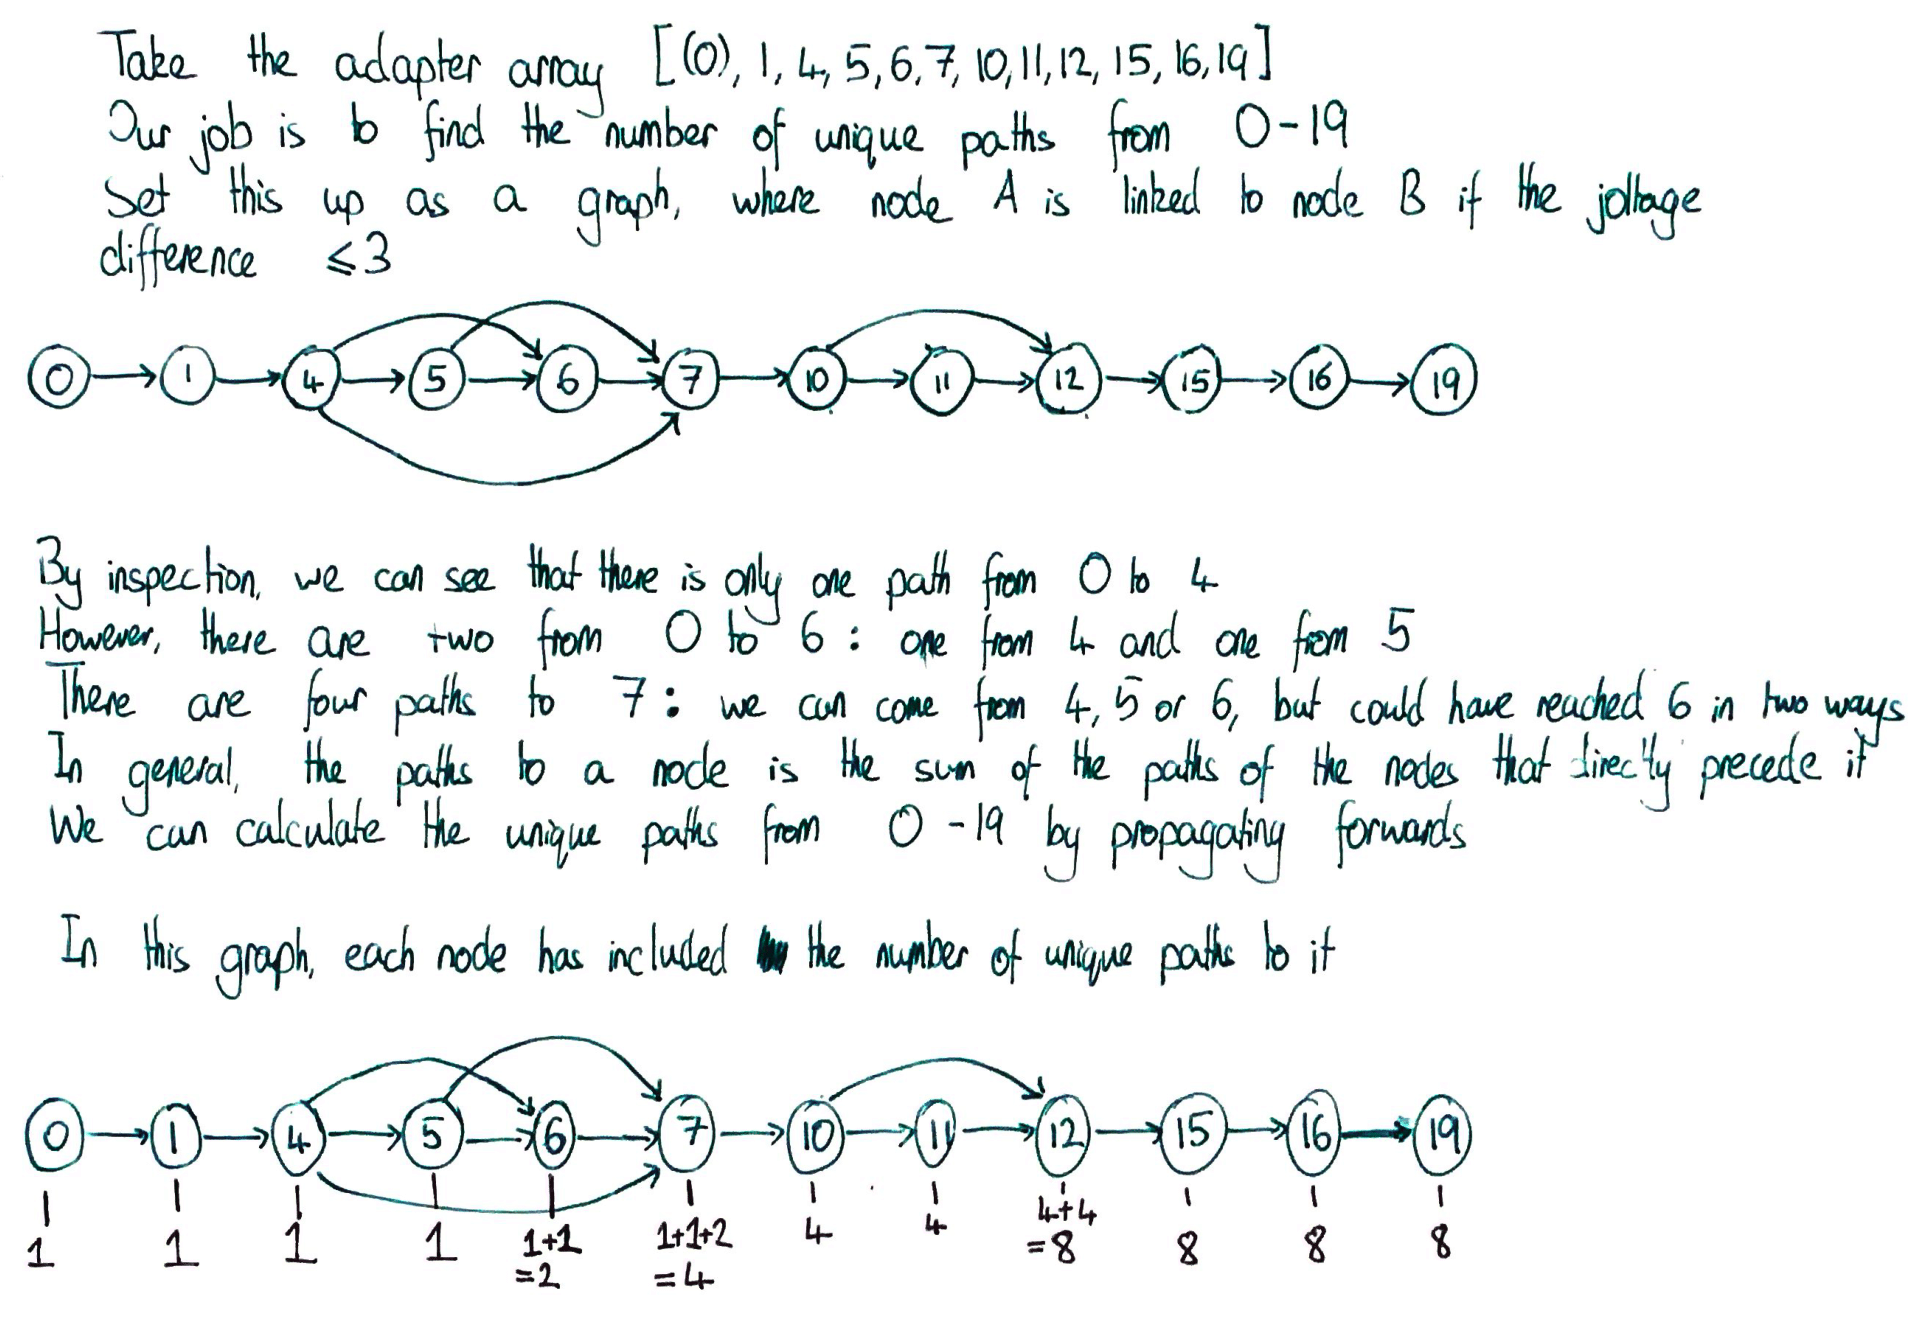 Take the adapter array [(0), 1, 4, 5, 6, 7, 10, 11, 12, 15, 16, 19]
Our job is to find the number of unique paths from 0-19
Set this up as a graph, where node A is linked to node B if the joltage
difference ≤3
0 1 4 5 6 7 10 11 12 15 16 19
By inspection, we can see that there is only one path from 0 to 4
However, there are two from 0 to 6 : one from 4 and one from 5
There are four paths to 7 : we can come from 4, 5 or 6, but could have reached 6 in two ways
In general, the paths to a node is the sum of the paths of the nodes that directly precede it
We can calculate the unique paths from 0-19 by propagating forwards
In this graph, each node has included the number of unique paths to it
0 1 4 5 6 7 10 11 12 15 16 19
1 1 1 1 1+1 1+1+2 4 4 4+4 8 8 8
=2 =4 =8